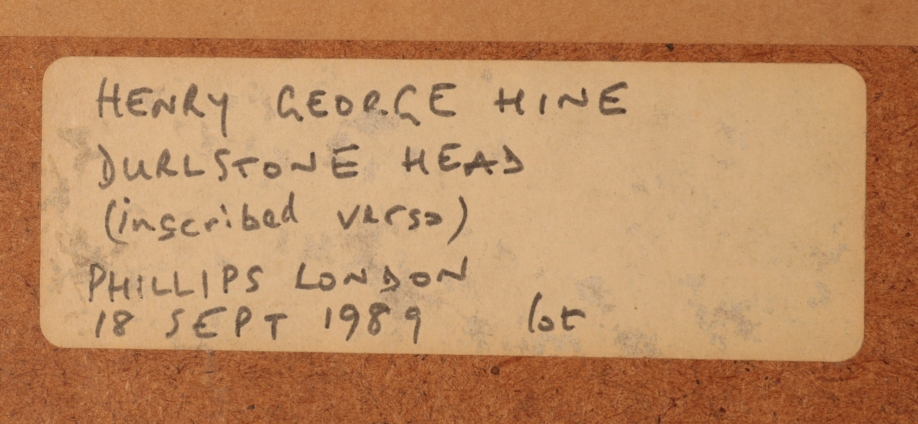 HENRY GEORGE HINE
DURLSTONE HEAD
(inscribed verso)
PHILLIPS LONDON
18 SEPT 1989 lot